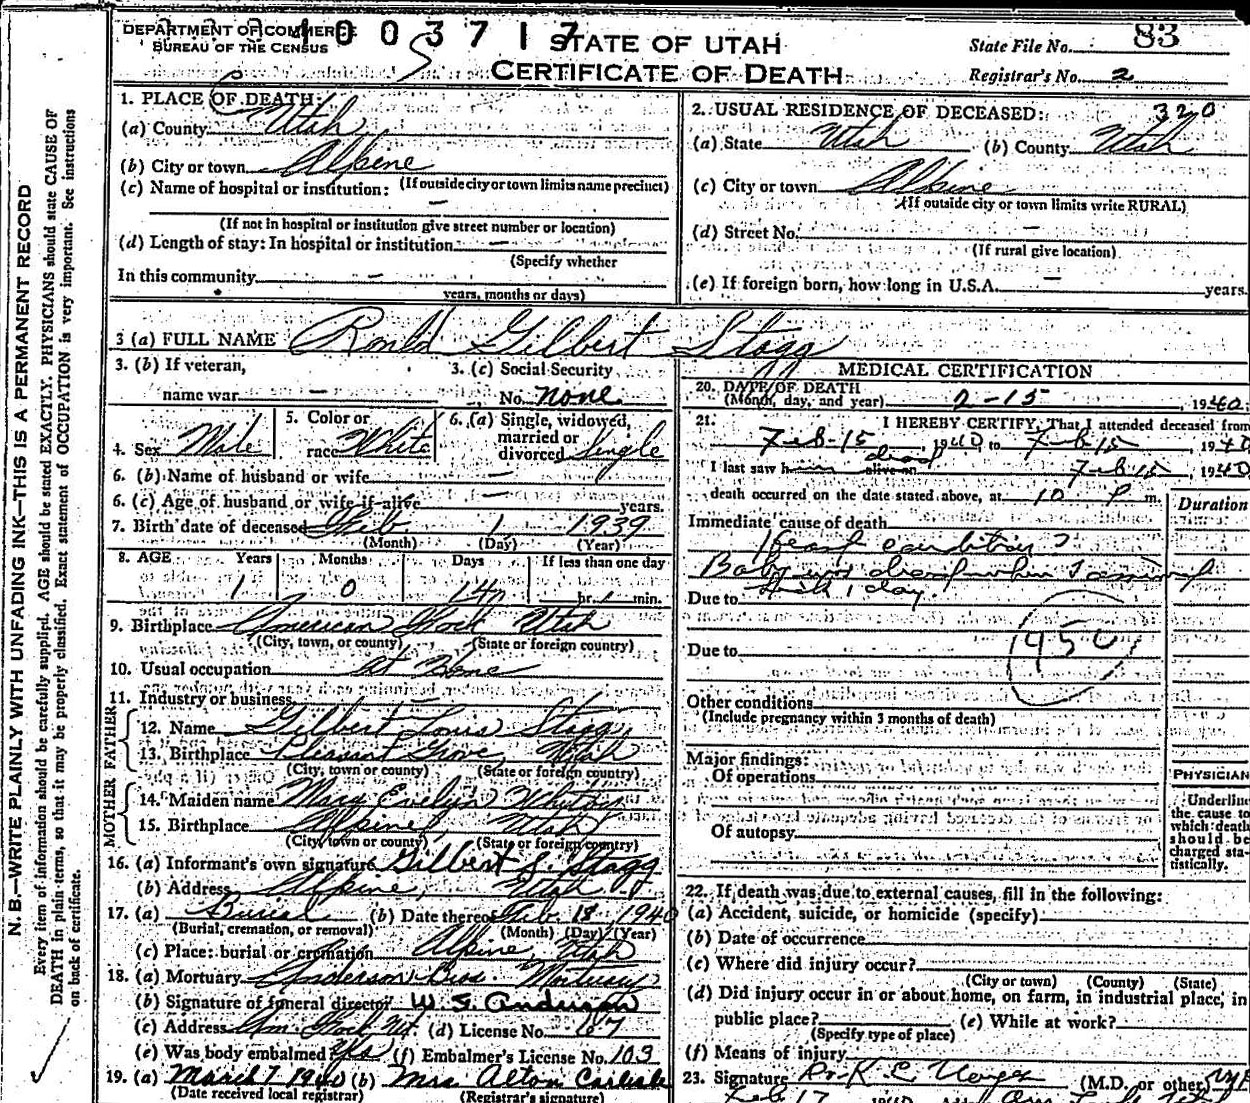 DEPARTMENT OF COMMERCE
BUREAU OF THE CENSUS
1003717
STATE OF UTAH
CERTIFICATE OF DEATH
State File No. 83
Registrar's No. 2
N. B.—WRITE PLAINLY WITH UNFADING INK—THIS IS A PERMANENT RECORD
Every item of information should be carefully supplied. AGE should be stated EXACTLY. PHYSICIANS should state CAUSE OF
DEATH in plain terms, so that it may be properly classified. Exact statement of OCCUPATION is very important. See instructions
on back of certificate.
1. PLACE OF DEATH:
(a) County Utah
(b) City or town Alpine
(If outside city or town limits name precinct)
(c) Name of hospital or institution: —
(If not in hospital or institution give street number or location)
(d) Length of stay: In hospital or institution —
(Specify whether
In this community —
years, months or days)
2. USUAL RESIDENCE OF DECEASED: 320
(a) State Utah (b) County Utah
(c) City or town Alpine
(If outside city or town limits write RURAL)
(d) Street No. —
(If rural give location)
(e) If foreign born, how long in U.S.A. — years.
3 (a) FULL NAME Ronld Gilbert Stagg
3. (b) If veteran,
name war —
3. (c) Social Security
No. none
4. Sex Male
5. Color or
race White
6. (a) Single, widowed,
married or
divorced Single
6. (b) Name of husband or wife —
6. (c) Age of husband or wife if alive — years.
7. Birth date of deceased Feb 1 1939
(Month) (Day) (Year)
8. AGE Years Months Days If less than one day
1 0 14 hr. min.
9. Birthplace American Fork Utah
(City, town, or county) (State or foreign country)
10. Usual occupation at Home
11. Industry or business
FATHER
12. Name Gilbert Louis Stagg
13. Birthplace Pleasant Grove, Utah
(City, town or county) (State or foreign country)
MOTHER
14. Maiden name Mary Evelyn
15. Birthplace Alpine, Utah
(City, town or county) (State or foreign country)
16. (a) Informant's own signature Gilbert L. Stagg
(b) Address Alpine, Utah
17. (a) Burial (b) Date thereof Feb. 18 1940
(Burial, cremation, or removal) (Month) (Day) (Year)
(c) Place: burial or cremation Alpine, Utah
18. (a) Mortuary Anderson Bros. Mortuary
(b) Signature of funeral director W. G. Anderson
(c) Address Am. Fork, Ut. (d) License No. 167
(e) Was body embalmed? Yes (f) Embalmer's License No. 103
19. (a) March 7 1940 (b) Mrs Alton Carlisle
(Date received local registrar) (Registrar's signature)
MEDICAL CERTIFICATION
20. DATE OF DEATH
(Month, day, and year) 2-15, 1940.
21. I HEREBY CERTIFY, That I attended deceased from
Feb-15, 1940 to Feb 15, 1940
dead
I last saw him alive on Feb 15, 1940
death occurred on the date stated above, at 10 P m.
Duration
Immediate cause of death
Heart condition?
Baby was dead when I arrived
Due to Sick 1 day.
Due to
950
Other conditions
(Include pregnancy within 3 months of death)
Major findings:
Of operations
Of autopsy
PHYSICIAN
Underline
the cause to
which death
should be
charged sta-
tistically.
22. If death was due to external causes, fill in the following:
(a) Accident, suicide, or homicide (specify)
(b) Date of occurrence
(c) Where did injury occur?
(City or town) (County) (State)
(d) Did injury occur in or about home, on farm, in industrial place, in
public place? (e) While at work?
(Specify type of place)
(f) Means of injury
23. Signature Dr. K. E. (M.D. or other)
Feb 17